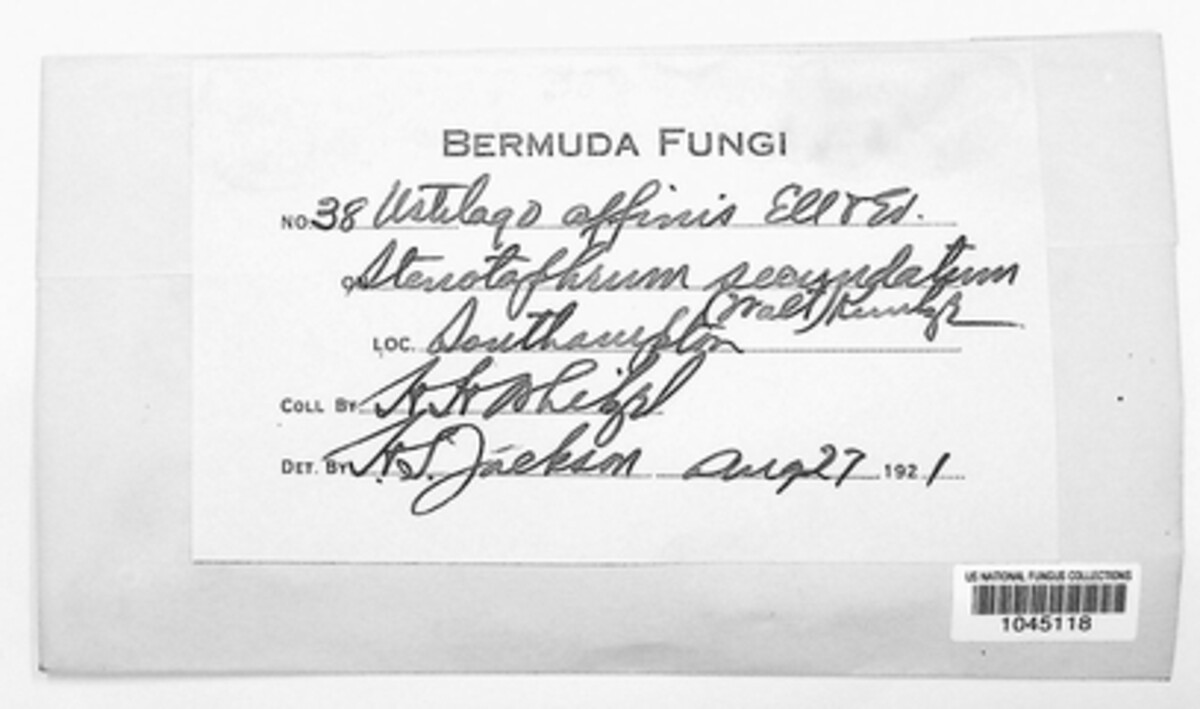 BERMUDA FUNGI
NO. 38 Ustilago affinis Ell & Ev.
On Stenotaphrum secundatum
(Walt) Kuntze
LOC. Southampton
COLL BY H H Whetzel
DET. BY H. S. Jackson Aug 27 1921
US NATIONAL FUNGUS COLLECTIONS
1045118